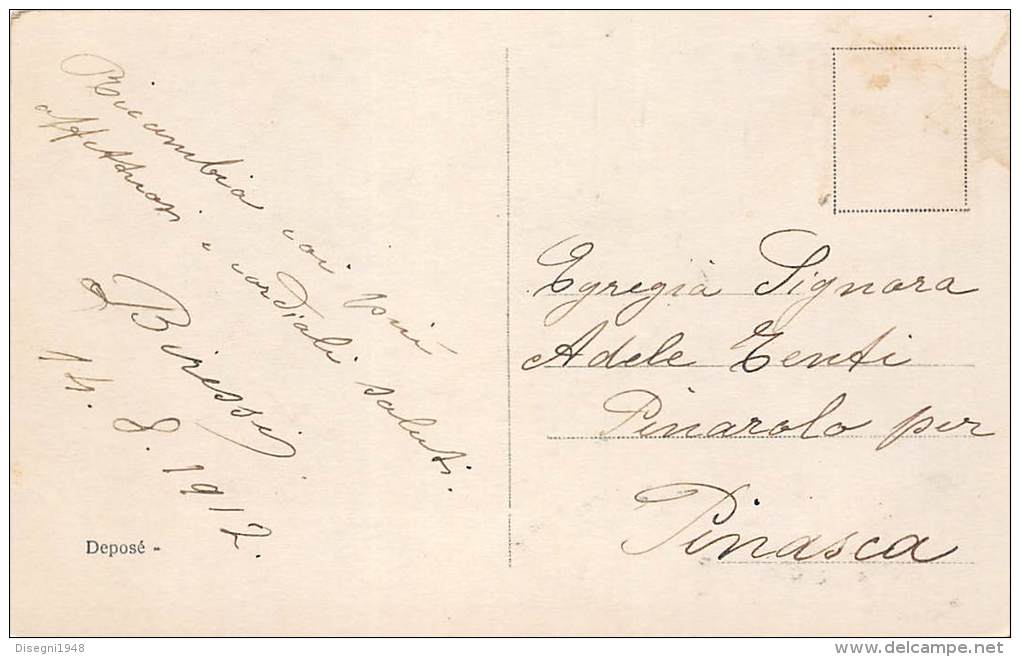 Ricambia coi più
affettuosi e cordiali saluti.
Biressi
14. 8. 1912.
Deposé -
Egregia Signora
Adele Tenti
Pinarolo per
Pinasca
Disegni1948
www.delcampe.net